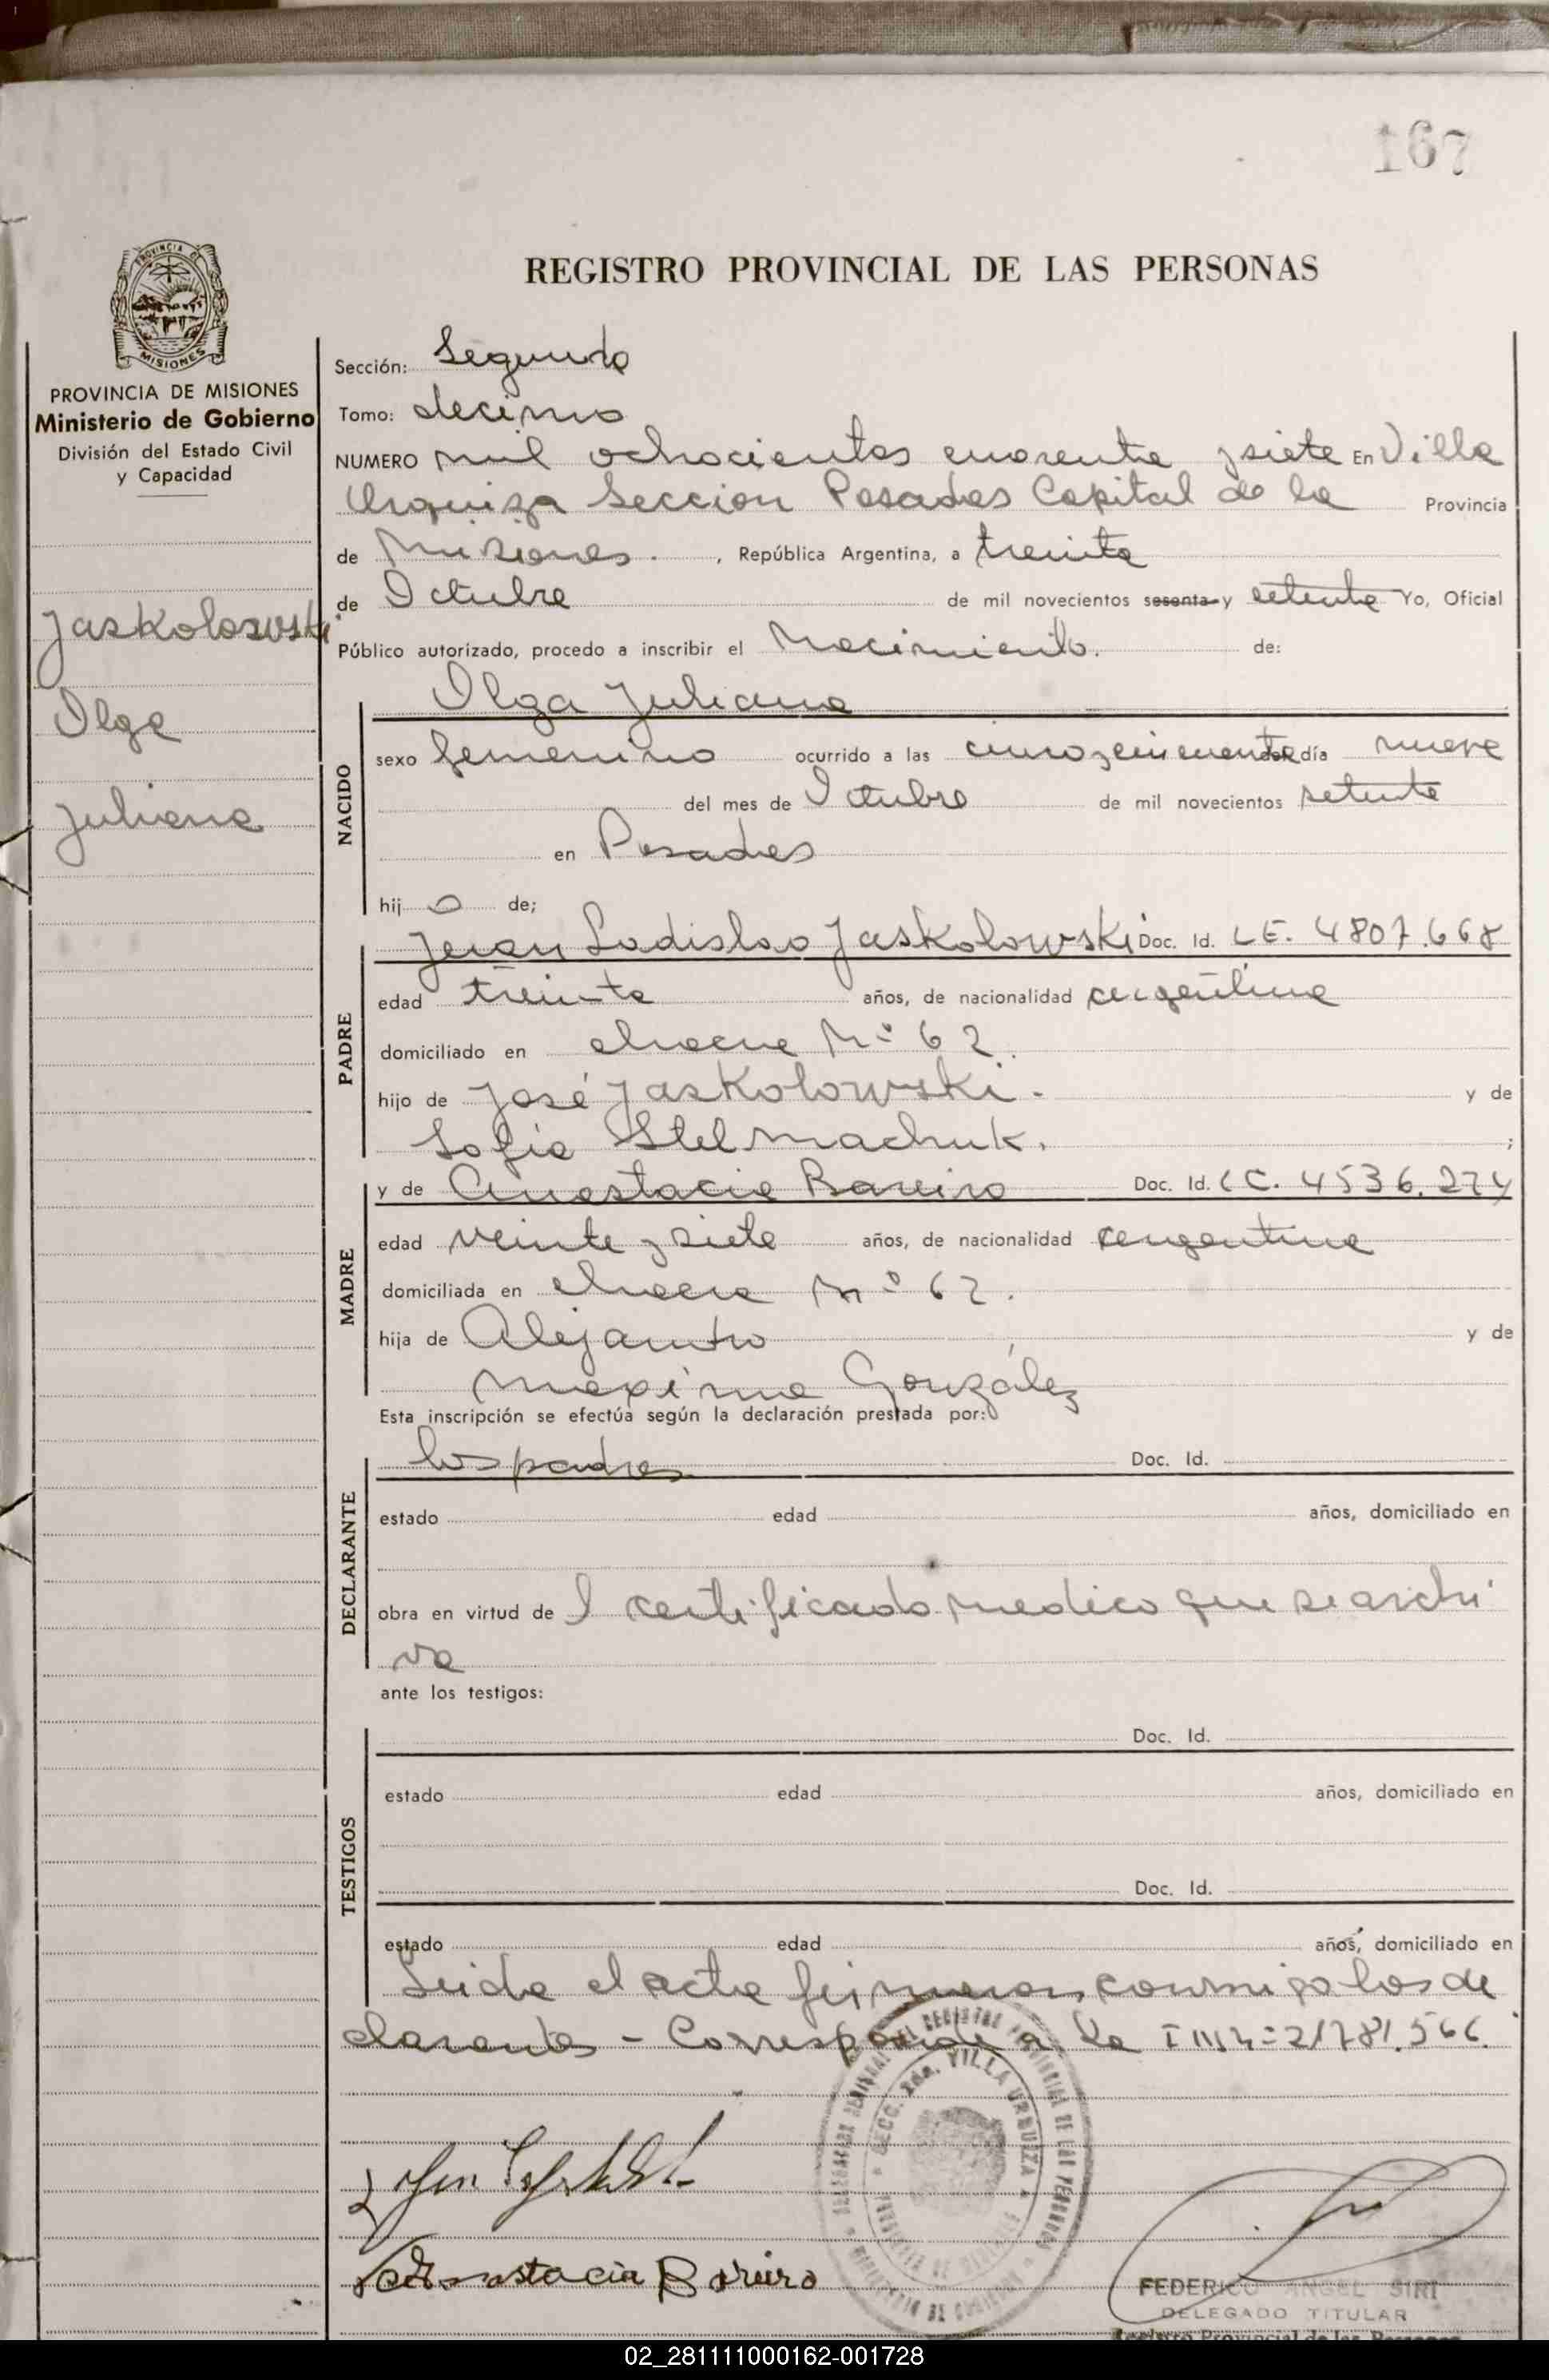 167
REGISTRO PROVINCIAL DE LAS PERSONAS
PROVINCIA DE MISIONES
Ministerio de Gobierno
División del Estado Civil
y Capacidad
Jaskolosowski
Olga
Juliana
Sección: Segunda
Tomo: decimo
NUMERO mil ochocientos cuarenta y siete En Villa
Urquiza Seccion Posadas Capital de la Provincia
de Misiones. , República Argentina, a treinta
de Octubre de mil novecientos sesenta y setenta Yo, Oficial
Público autorizado, procedo a inscribir el Nacimiento. de:
NACIDO
Olga Juliana
sexo femenino ocurrido a las cinco y cincuenta del día nueve
del mes de Octubre de mil novecientos setenta
en Posadas
hij a de;
PADRE
Juan Ladislao Jaskolowski Doc. Id. L E. 4807.668
edad treinta años, de nacionalidad argentina
domiciliado en chacra Nº 62.
hijo de José Jaskolowski. y de
Sofia Stelmachuk. ;
MADRE
y de Anastacia Bareiro Doc. Id. L C. 4536.274
edad veinte y siete años, de nacionalidad argentina
domiciliada en chacra Nº 62.
hija de Alejandro y de
maxima González
Esta inscripción se efectúa según la declaración prestada por:
DECLARANTE
los padres Doc. Id.
estado edad años, domiciliado en
obra en virtud de l certificado medico que se archi
va
ante los testigos:
TESTIGOS
Doc. Id.
estado edad años, domiciliado en
Doc. Id.
estado edad años, domiciliado en
Leida el acta firmaron conmigo los de
clarantes - Corresponde a la 21781.566.
SECC. 2da. VILLA URQUIZA
Anastacia Bareiro
FEDERICO ANGEL SIRI
DELEGADO TITULAR
Registro Provincial de las Personas
02_281111000162-001728